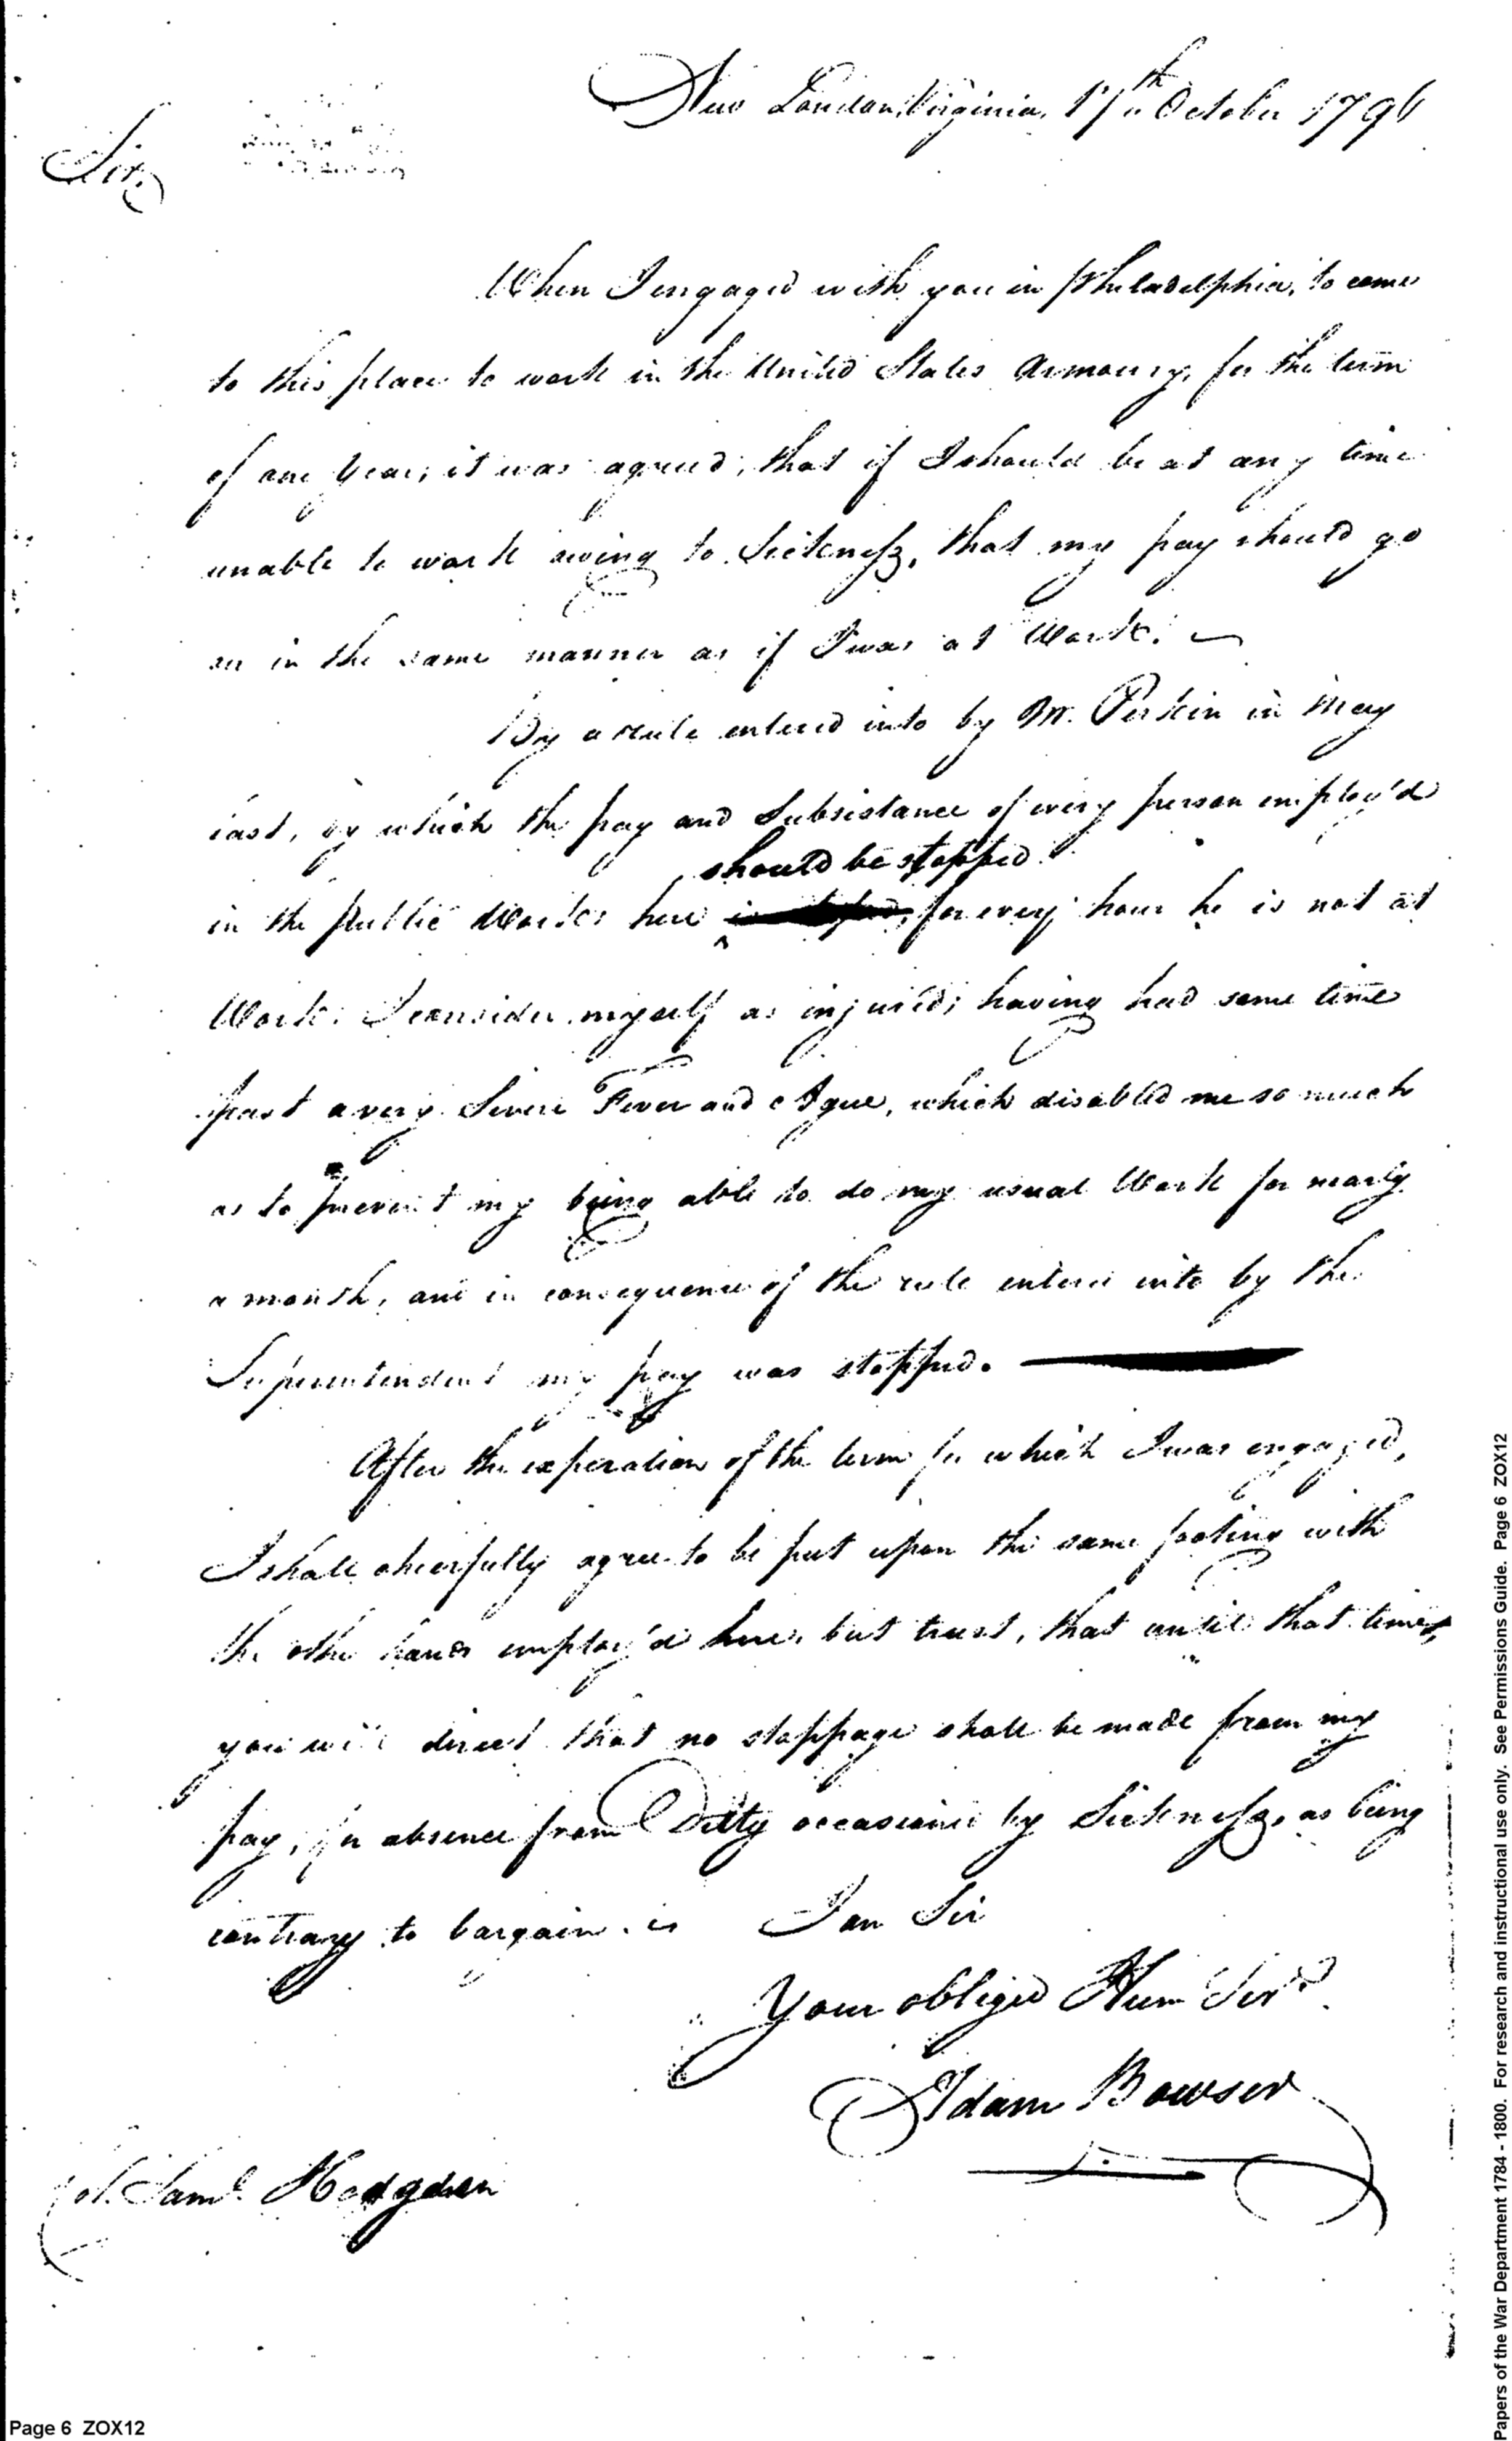 New London, Virginia, 17th October 1796
Sir,
When I engaged with you in Philadelphia, to come
to this place to work in the United States Armoury, for the term
of one Year; it was agreed, that if I should be at any time
unable to work owing to Sickness, that my pay should go
on in the same manner as if I was at Work.
By a rule entered into by Mr. Perkin in May
last, by which the pay and Subsistance of every person employ'd
should be stopped
in the Public Works here for every hour he is not at
Work. I consider myself as injured; having had some time
past a very Severe Fever and Ague, which disabled me so much
as to prevent my being able to do my usual Work for nearly
a month, and in consequence of the rule entered into by the
Superintendent my pay was stopped.
After the experation of the term for which I was engaged,
I shall cheerfully agree to be put upon the same footing with
the other hands employ'd here, but trust, that until that time,
you will direct that no stoppage shall be made from my
pay, for absence from Duty occasioned by Sickness, as being
contrary to bargain. I am Sir
Your obliged Hum Servt
Adam Bowser
Col. Saml. Hodgden
Page 6 ZOX12
Papers of the War Department 1784 - 1800. For research and instructional use only. See Permissions Guide. Page 6 ZOX12